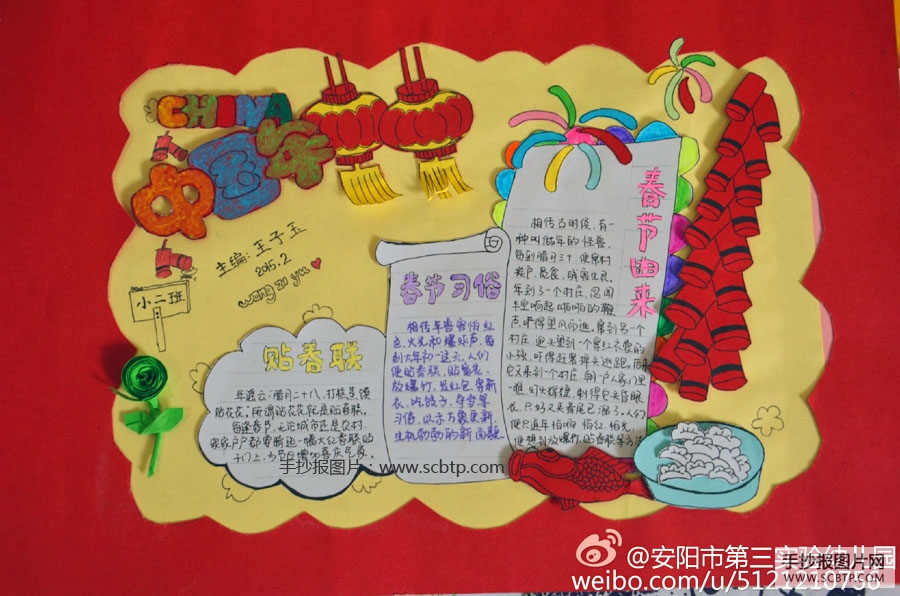 CHINA
中国年
主编:王子玉
2015.2
wang zi yu
小二班
贴春联
年谣云:腊月二十八,打糕蒸馍
贴花花。所谓贴花花就是贴春联。
每逢春节,无论城市还是农村,
家家户户都要精选一幅大红春联贴
于门上,为节日增加喜庆气氛。
春节习俗
相传年兽害怕红
色、火光和爆炸声,每
到大年初一这天,人们
便贴春联、贴窗花、
放爆竹、发红包、穿新
衣、吃饺子、守岁等
习俗,以示万象更新
生机勃勃的新面貌。
春节由来
相传古时侯,有一
种叫做年的怪兽,
每到腊月三十,便窜村
挨户,觅食,残害生民。
年到了一个村庄,忽闻
半空响起啪啪的鞭
声,吓得望风而逃。窜到另一个
村庄,迎头望到一个穿红衣裳的
小孩,吓得赶紧掉头逃跑,后来
它又来到一个村庄,朝一户人家门里
一瞧,灯火辉煌,刺得它头昏眼
花,只好又夹着尾巴溜了。人们
便只道年怕响,怕红,怕光,
便想到放爆竹,贴春联等方法
手抄报图片:www.scbtp.com
@安阳市第三实验幼儿园
weibo.com/u/5121210756
手抄报图片网
WWW.SCBTP.COM